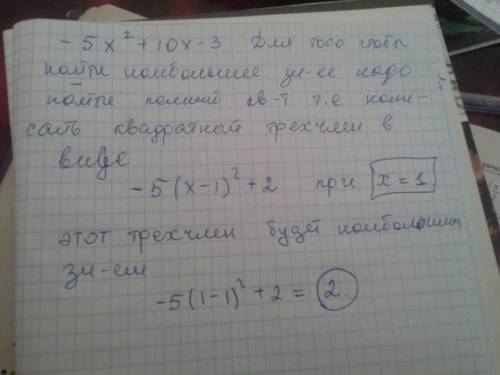 -5x² + 10x - 3 Для того чтобы
найти наибольшее зн-ее надо
найти полный кв-т т.е напи-
сать квадратный трехчлен в
виде
-5(x-1)² + 2 при x = 1
этот трехчлен будет наибольшим
зн-ем
-5(1-1)² + 2 = 2.